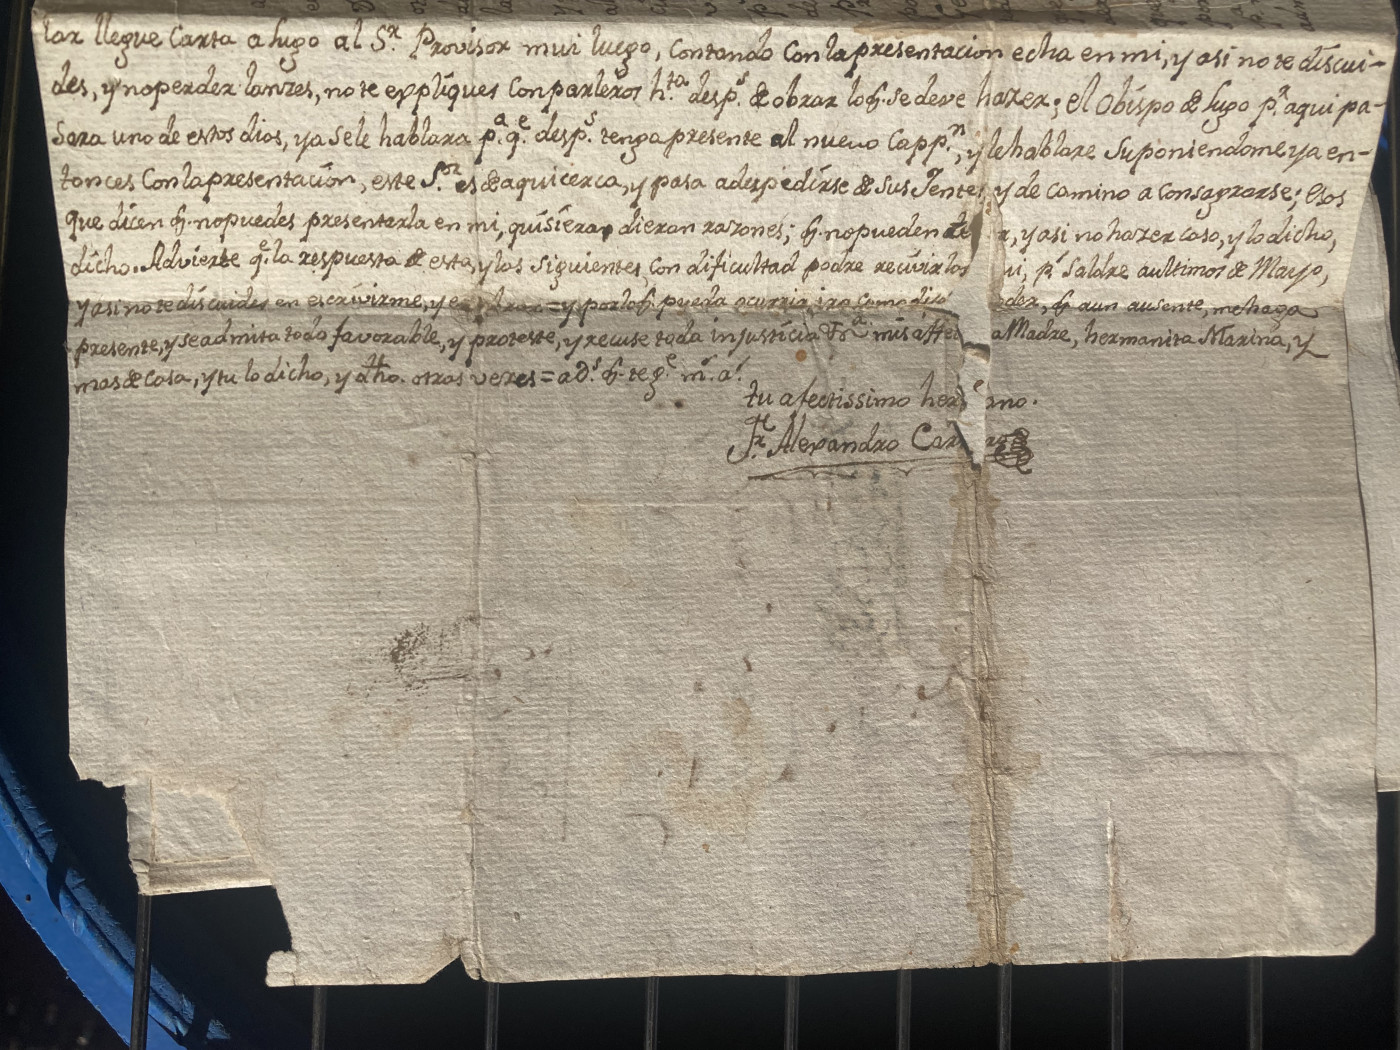 tar llegue Carta a lugo al S.r Provisor mui luego, Contando Con la presentacion echa en mi, y asi no te discui-
des, y no perder lanzes, no te expliques Con parleros h.ta desp.s de obrar lo q. se deve hazer; el Obispo de lugo p.r aqui pa-
sara uno de estos dias, ya se le hablara p.a q.e desp.s tenga presente al nuevo Capp.n, y le hablare Suponiendome ya en-
tonces Con la presentación, este S.or es de aqui cerca, y pasa a despedirse de sus Jentes, y de camino a Consagrarse; Esos
que dicen q. no puedes presentarla en mi, quisieran dieran razones; q. no pueden , y asi no hazer caso, y lo dicho,
dicho. Advierte q.e la respuesta de esta, y las siguientes con dificultad podre recivirlas , p.r Saldre a ultimos de Mayo,
y asi no te discuides en escrivirme, y = y por lo q. pueda ocurrir , q. aun ausente, me haga
presente, y se admita todo favorable, y proteste, y recuse toda injusticia mis a Madre, hermanita Marina, y
mas de Casa, y tu lo dicho, y dho. otras vezes = a D.s q. te g.e m.s a.s
tu afectissimo hermano.
Fr. Alexandro